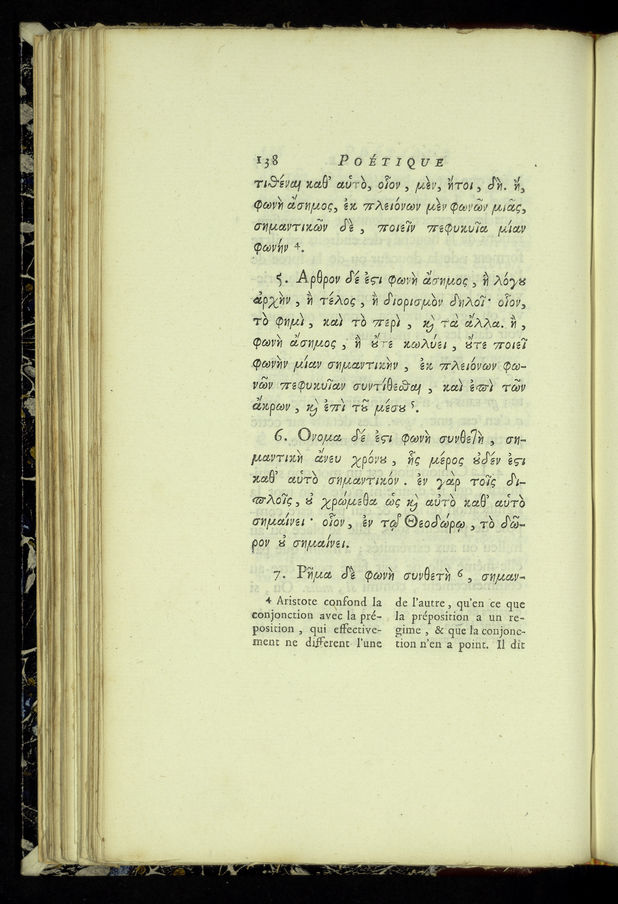 138 POÉTIQUE
τιθέναι καθ' αὑτὸ, οἷον, μὲν, ἤτοι, δή. ἤ,
φωνὴ ἄσημος, ἐκ πλειόνων μὲν φωνῶν μιᾶς,
σημαντικῶν δὲ, ποιεῖν πεφυκυῖα μίαν
φωνήν 4.
5. Αρθρον δέ ἐϛι φωνὴ ἄσημος, ἣ λόγȣ
ἀρχὴν, ἢ τέλος, ἢ διορισμὸν δηλοῖ· οἷον,
τὸ φημὶ, καὶ τὸ περὶ, κ̀ τὰ ἄλλα. ἤ,
φωνὴ ἄσημος, ἣ ȣ̓́τε κωλύει, ȣ̓́τε ποιεῖ
φωνὴν μίαν σημαντικὴν, ἐκ πλειόνων φω-
νῶν πεφυκυῖαν συντίθεσθαι, καὶ ἐπὶ τῶν
ἄκρων, κ̀ ἐπὶ τȣ͂ μέσȣ 5.
6. Ονομα δέ ἐϛι φωνὴ συνθετὴ, ση-
μαντικὴ ἄνευ χρόνȣ, ἧς μέρος ȣ̓δέν ἐϛι
καθ' αὑτὸ σημαντικόν. ἐν γὰρ τοῖς δι-
πλοῖς, ȣ̓ χρώμεθα ὡς κ̀ αὐτὸ καθ' αὑτὸ
σημαίνει· οἷον, ἐν τῷ Θεοδώρῳ, τὸ δῶ-
ρον ȣ̓ σημαίνει.
7. Ρῆμα δὲ φωνὴ συνθετὴ 6, σημαν-
4 Aristote confond la
conjonction avec la pré-
position, qui effective-
ment ne different l'une
de l'autre, qu'en ce que
la préposition a un re-
gime, & que la conjonc-
tion n'en a point. Il dit